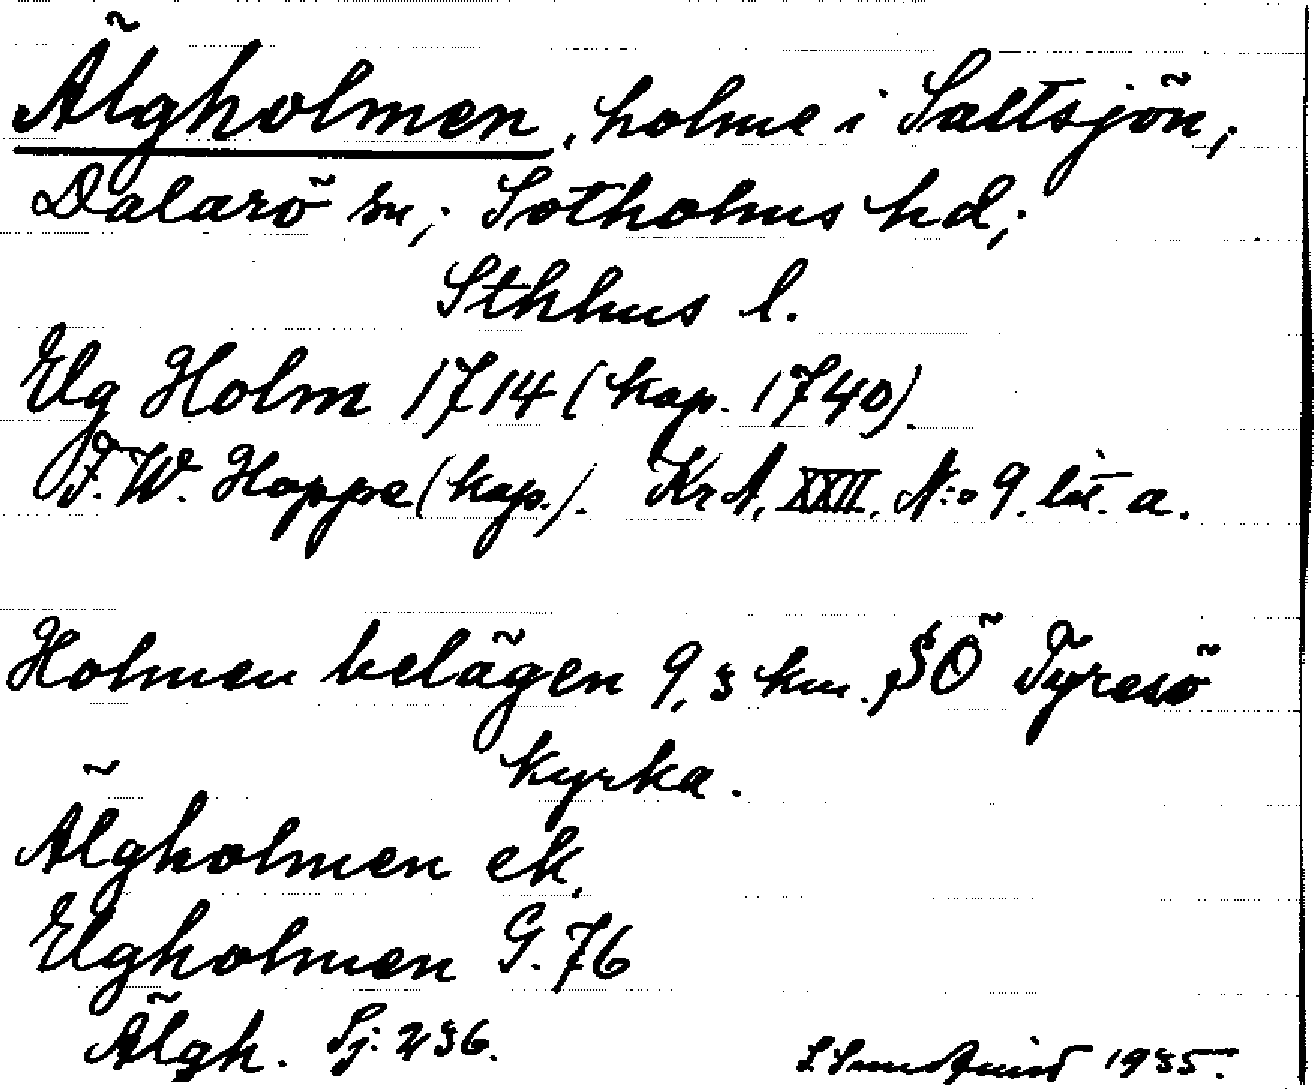 Älgholmen, holme i Saltsjön,
Dalarö sn, Sotholms hd,
Sthlms l.
Elg Holm 1714 (kap. 1740).
F.W. Hoppe (kap.). KrA. XXII. N:o 9. lit. a.
Holmen belägen 9,3 km. SÖ Tyresö
kyrka.
Älgholmen ek.
Elgholmen G. 76
Älgh. Sj. 236.
1935.